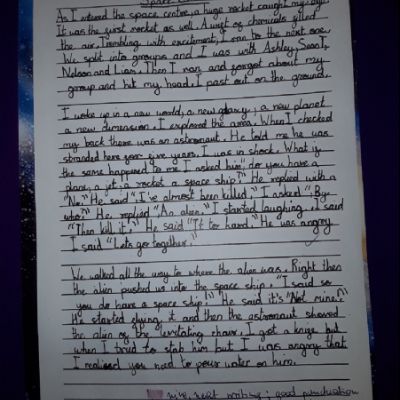 Space
As I entered the space centre, a huge rocket caught my eye.
It was the first rocket as well. A waft of chemicals filled
the air. Trembling with excitement, I ran to the next one.
We split into groups and I was with Ashley, Sean T,
Nelson and Liam. Then I ran and forgot about my
group and hit my head. I past out on the ground.
I woke up in a new world, a new galaxy, a new planet
a new dimension. I explored the area. When I checked
my back there was an astronaut. He told me he was
stranded here for five years. I was in shock. What if
the same happened to me I asked him, "do you have a
plane, a jet, a rocket a space ship?" He replied with a
"No." He said "I've almost been killed," I asked "By
who?" He replied "An alien." I started laughing. I said
"Then kill it!" He said "It to hard." He was angry
I said "Lets go together."
We walked all the way to where the alien was. Right then
the alien pushed us into the space ship. "I said so
you do have a space ship!" He said it's "Not mine."
He started flying it and then the astronaut showed
the alien of by levitating chairs. I got a knife but
when I tried to stab him but I was angry that
I realised you need to pour water on him.
writing; good punctuation